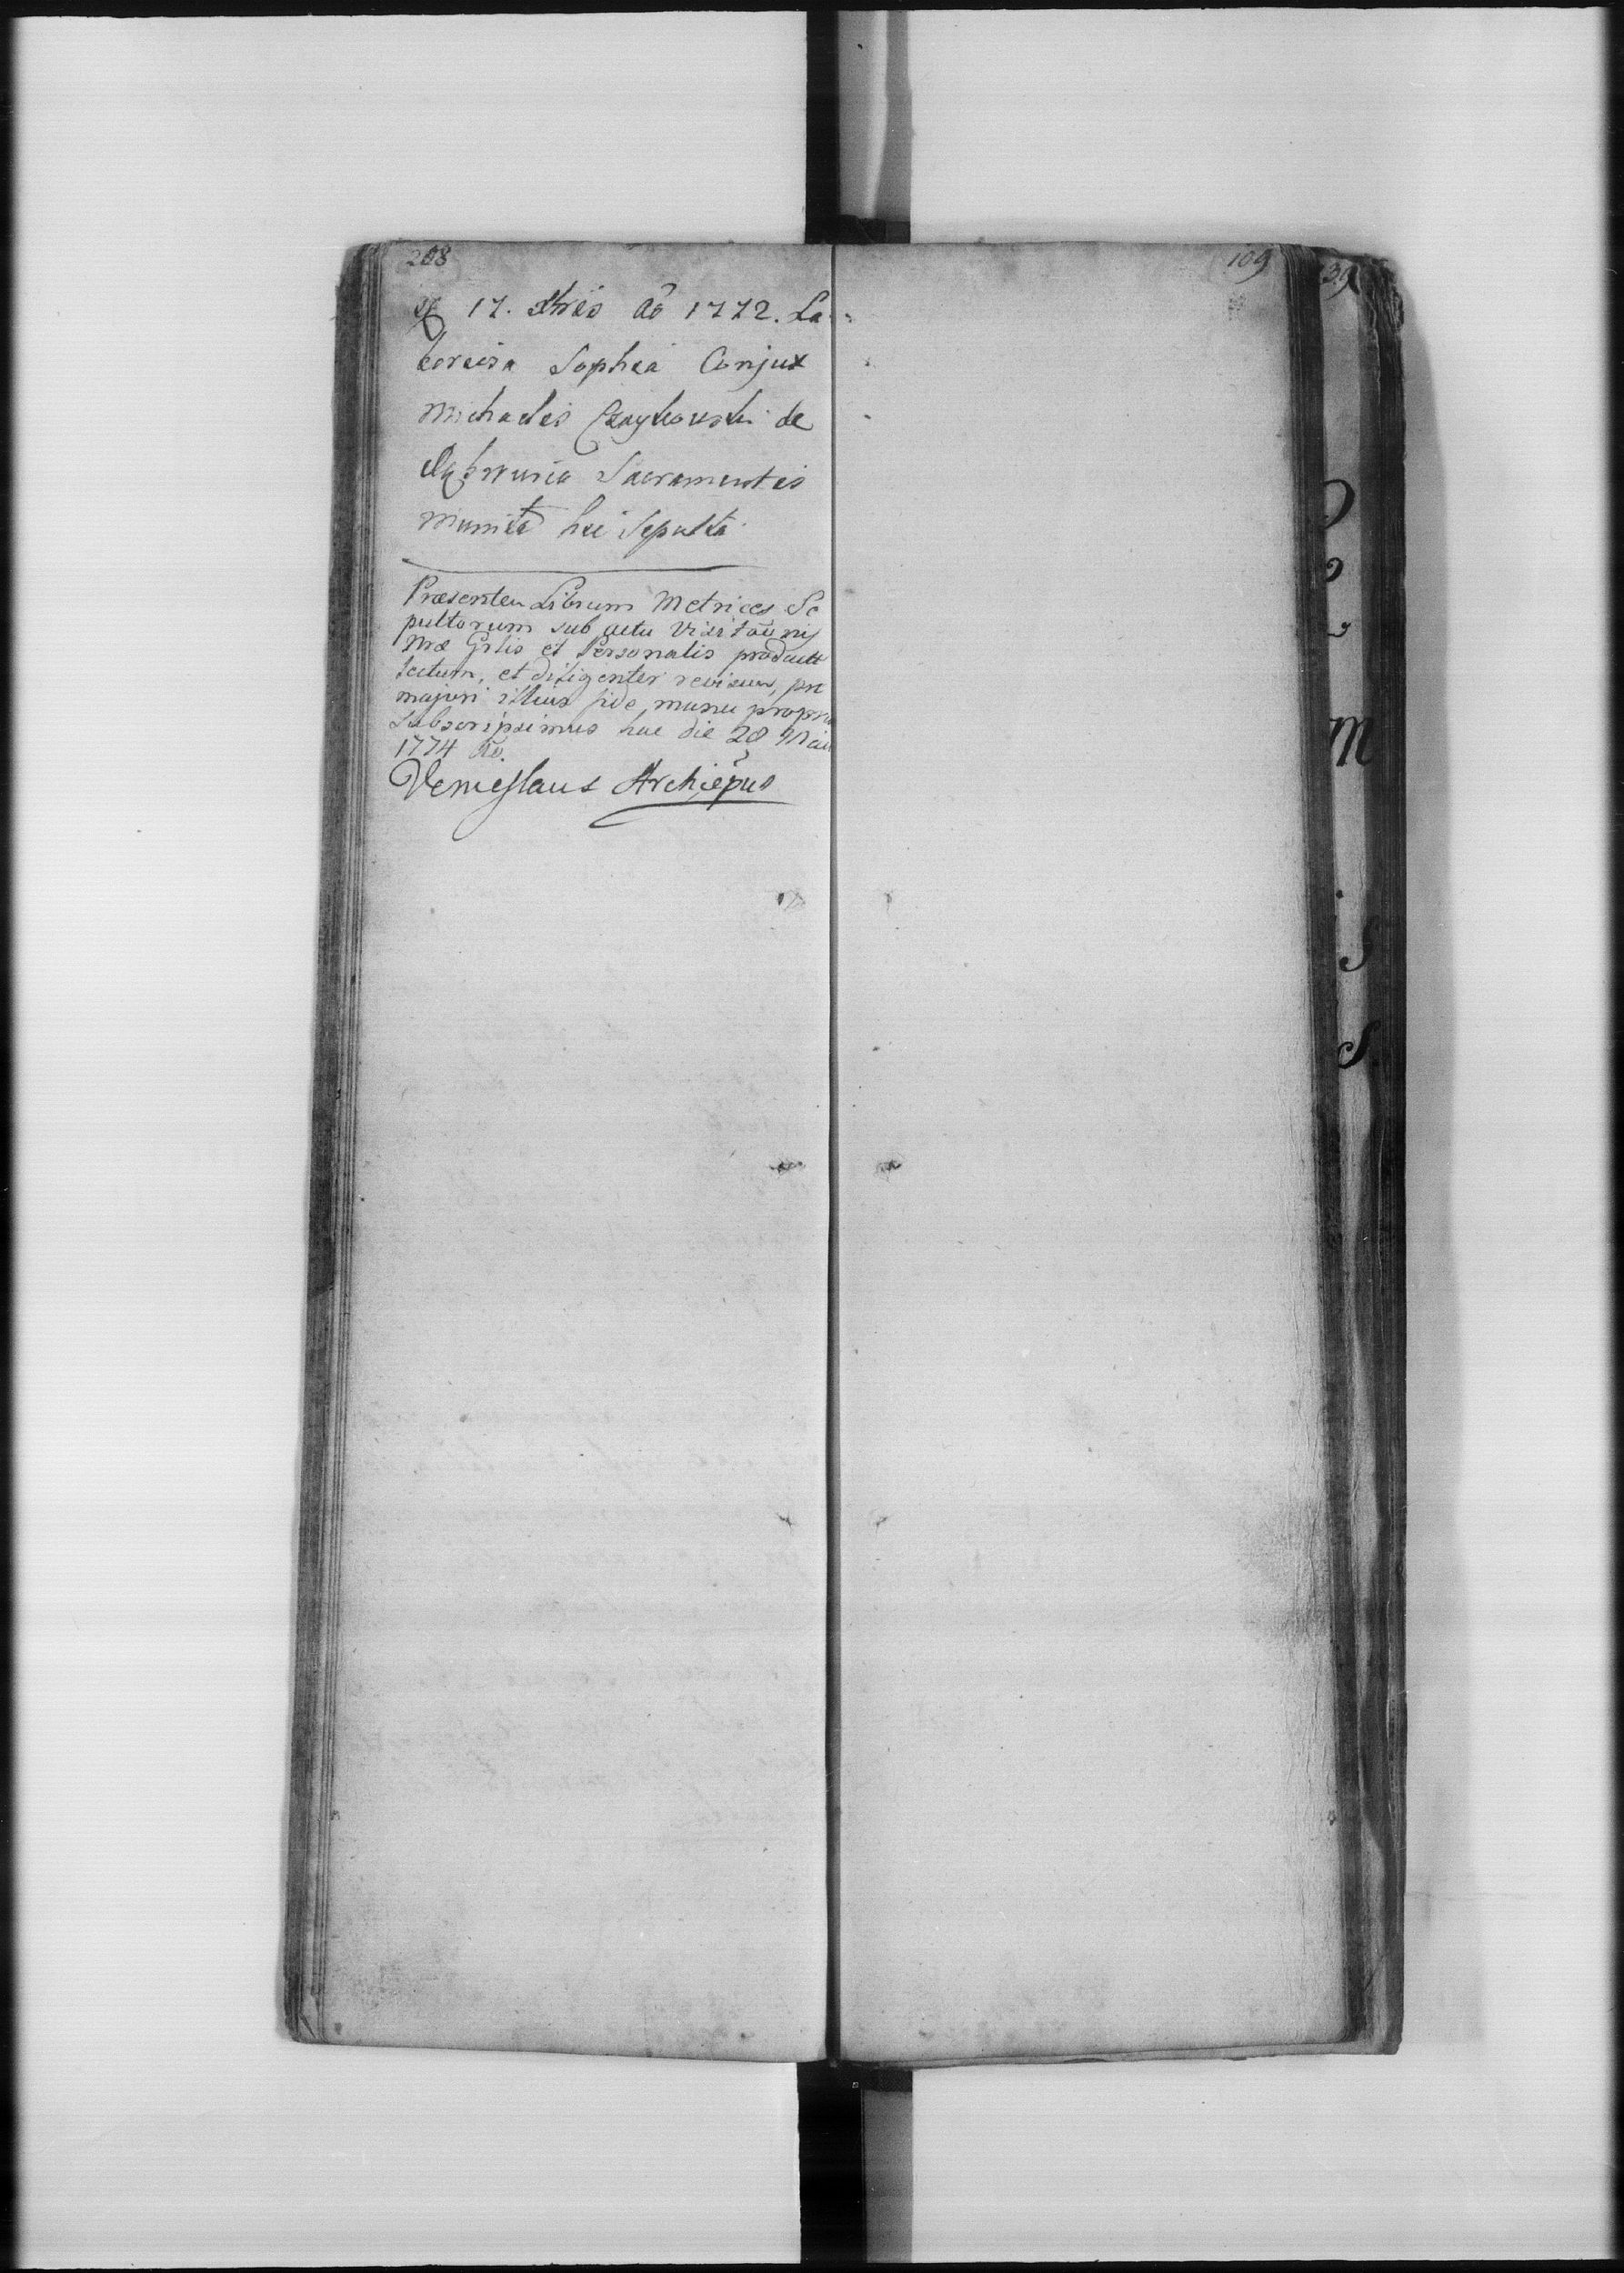 208
17. Xbris Ao 1772. La-
boriosa Sophia Conjux
Michaelis de
Sacramentis
munita hic Sepulta
Præsentem Librum Metrices Se
pultorum sub actu Visitaõnis
Nræ Gnlis et Personalis product
lectum, et diligenter revisum, pro
majori illius fide manu propria
subscripsimus hac die 28 Maii
1774 Ao.
Venceslaus Archiẽpus
109
39
M
S
S.